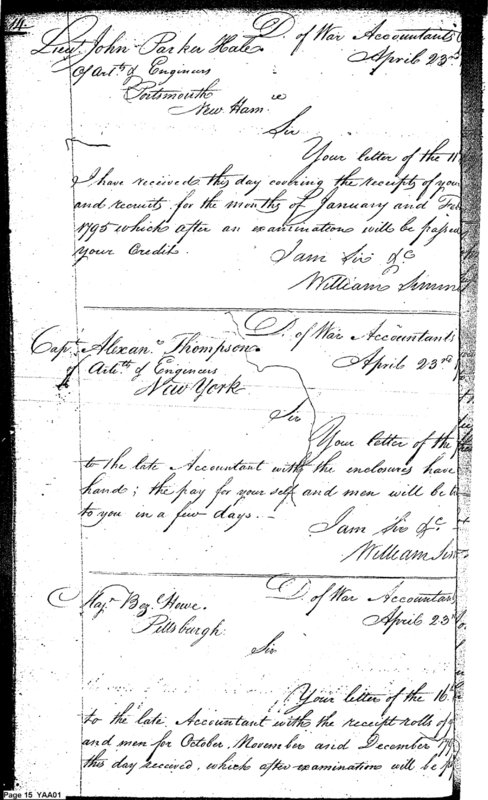 114
D. of War Accountants
Lieut. John Parker Hale.
April 23rd
Of Arty. & Engineers
Portsmouth
New Hamre
Sir
Your letter of the 11
I have received this day covering the receipts of your
and recruits for the months of January and Feb
1795 which after an examination will be passed
your Credit.
I am Sir &c
William Simm
D. of War Accountants
Capt. Alexanr. Thompson.
April 23rd
of Artly. & Engineers
New York
Sir
Your letter of the
to the late Accountant with the enclosures have
hand; the pay for your self and men will be
to you in a few days. —
I am Sir &c.
William Sim
D. of War Accountant
Majr. Bez. Howe.
April 23rd
Pittsburgh
Sir
Your letter of the 16th
to the late Accountant with the receipt rolls of
and men for October, November and December 179
this day received, which after examination will be
Page 15 YAA01